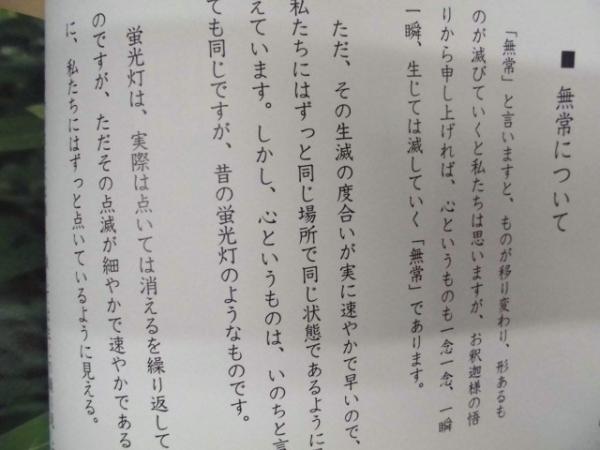 ■ 無常について
「無常」と言いますと、ものが移り変わり、形あるも
のが滅びていくと私たちは思いますが、お釈迦様の悟
りから申し上げれば、心というものも一念一念、一瞬
一瞬、生じては滅していく「無常」であります。
ただ、その生滅の度合いが実に速やかで早いので、
私たちにはずっと同じ場所で同じ状態であるように
えています。しかし、心というものは、いのちと言
ても同じですが、昔の蛍光灯のようなものです。
蛍光灯は、実際は点いては消えるを繰り返して
のですが、ただその点滅が細やかで速やかである
に、私たちにはずっと点いているように見える。